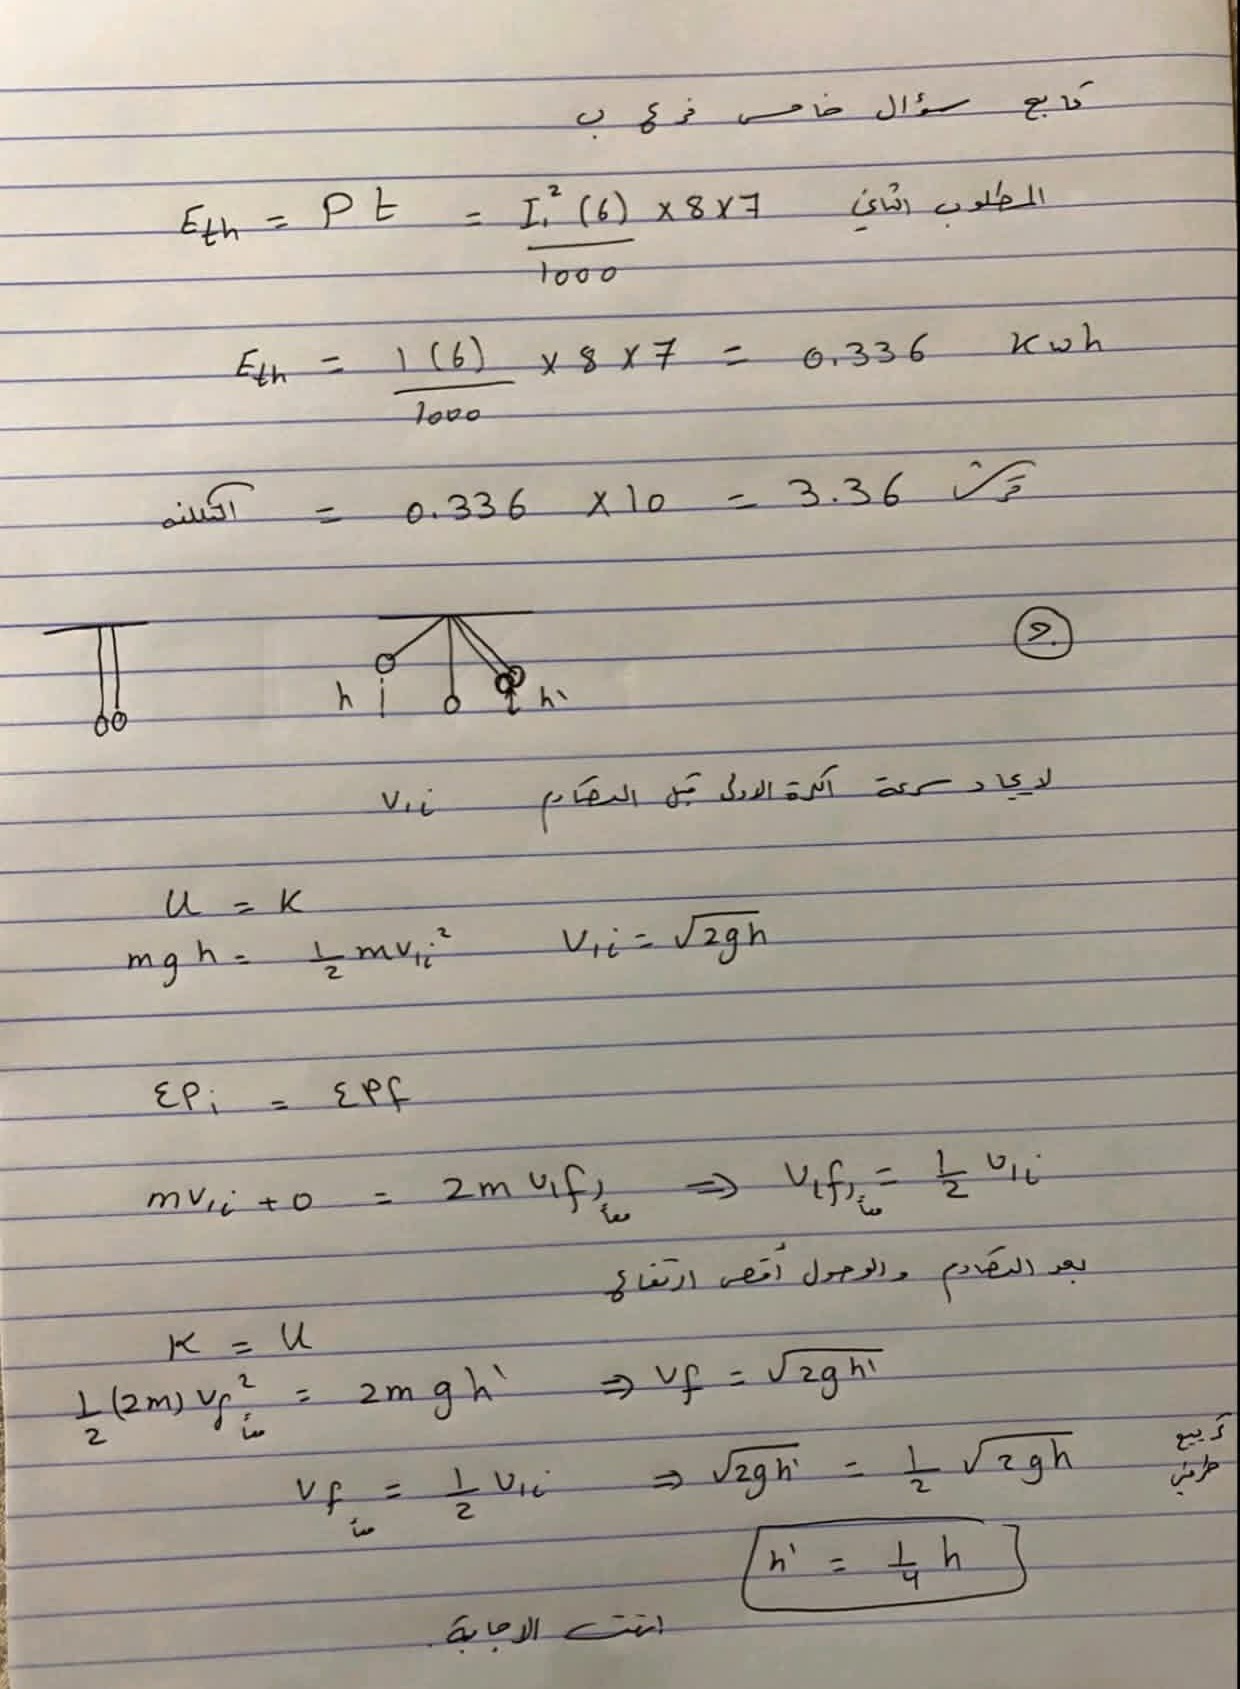 تابع سؤال خامس فرع ب
المطلوب الثاني Eth = P t = I₁² (6) / 1000 × 8 × 7
Eth = 1 (6) / 1000 × 8 × 7 = 0.336 kwh
التكلفة = 0.336 × 10 = 3.36 قرش
h h'
لايجاد سرعة الكرة الاولى قبل التصادم v₁i
U = K
mgh = 1/2 mv₁i² v₁i = √2gh
Σpi = Σpf
mv₁i + 0 = 2m v₁f معاً ⇒ v₁f معاً = 1/2 v₁i
بعد التصادم والوصول أقصى ارتفاع
K = U
1/2 (2m) vf² معاً = 2mgh' ⇒ vf = √2gh'
vf معاً = 1/2 v₁i ⇒ √2gh' = 1/2 √2gh تربيع طرفين
h' = 1/4 h
انتهت الاجابة